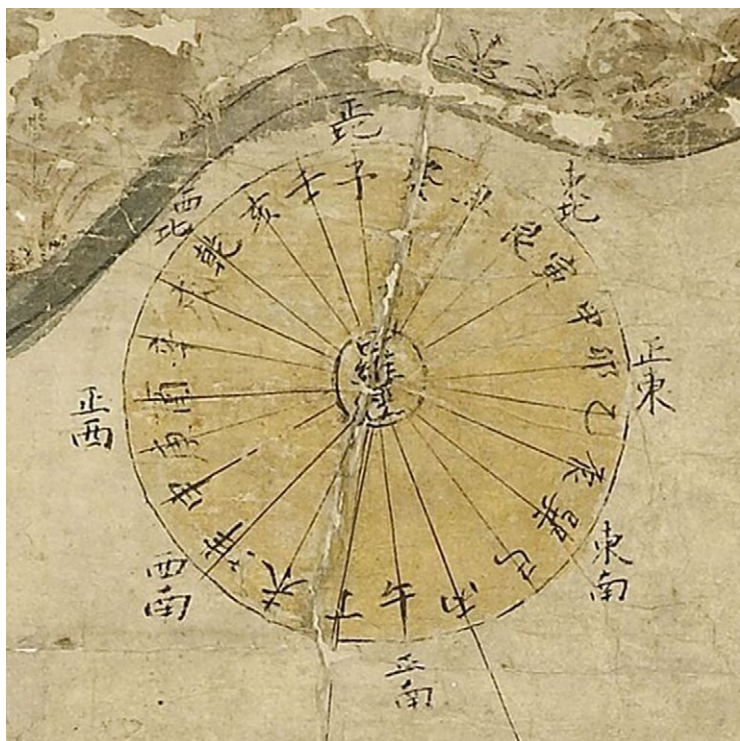 正北
東北
正東
東南
正南
西南
正西
西北
子
癸
丑
艮
寅
甲
卯
乙
辰
巽
巳
丙
午
丁
未
坤
申
庚
酉
辛
戌
乾
亥
壬
羅